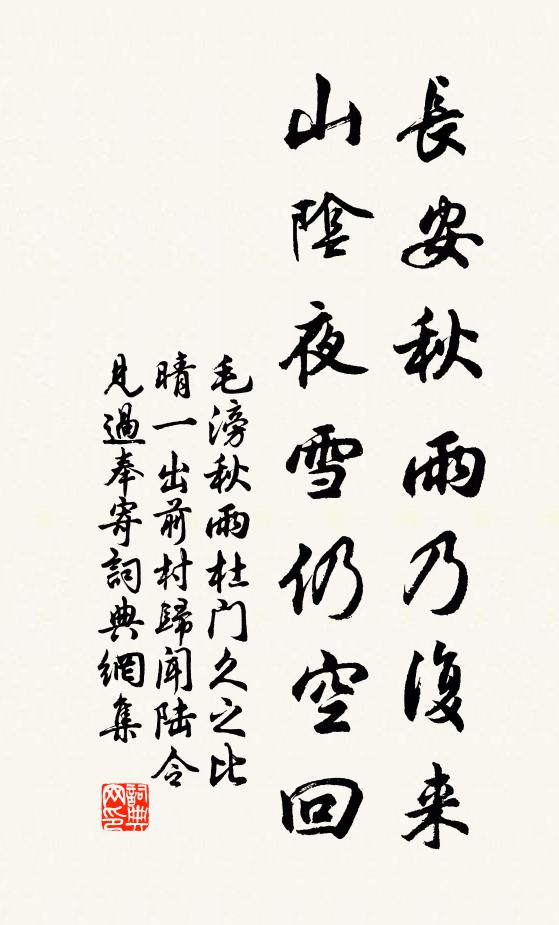 長安秋雨乃復来
山陰夜雪仍空回
毛滂秋雨杜门久之比
晴一出前村歸闻陆令
見過奉寄詞典網集
詞典
网印